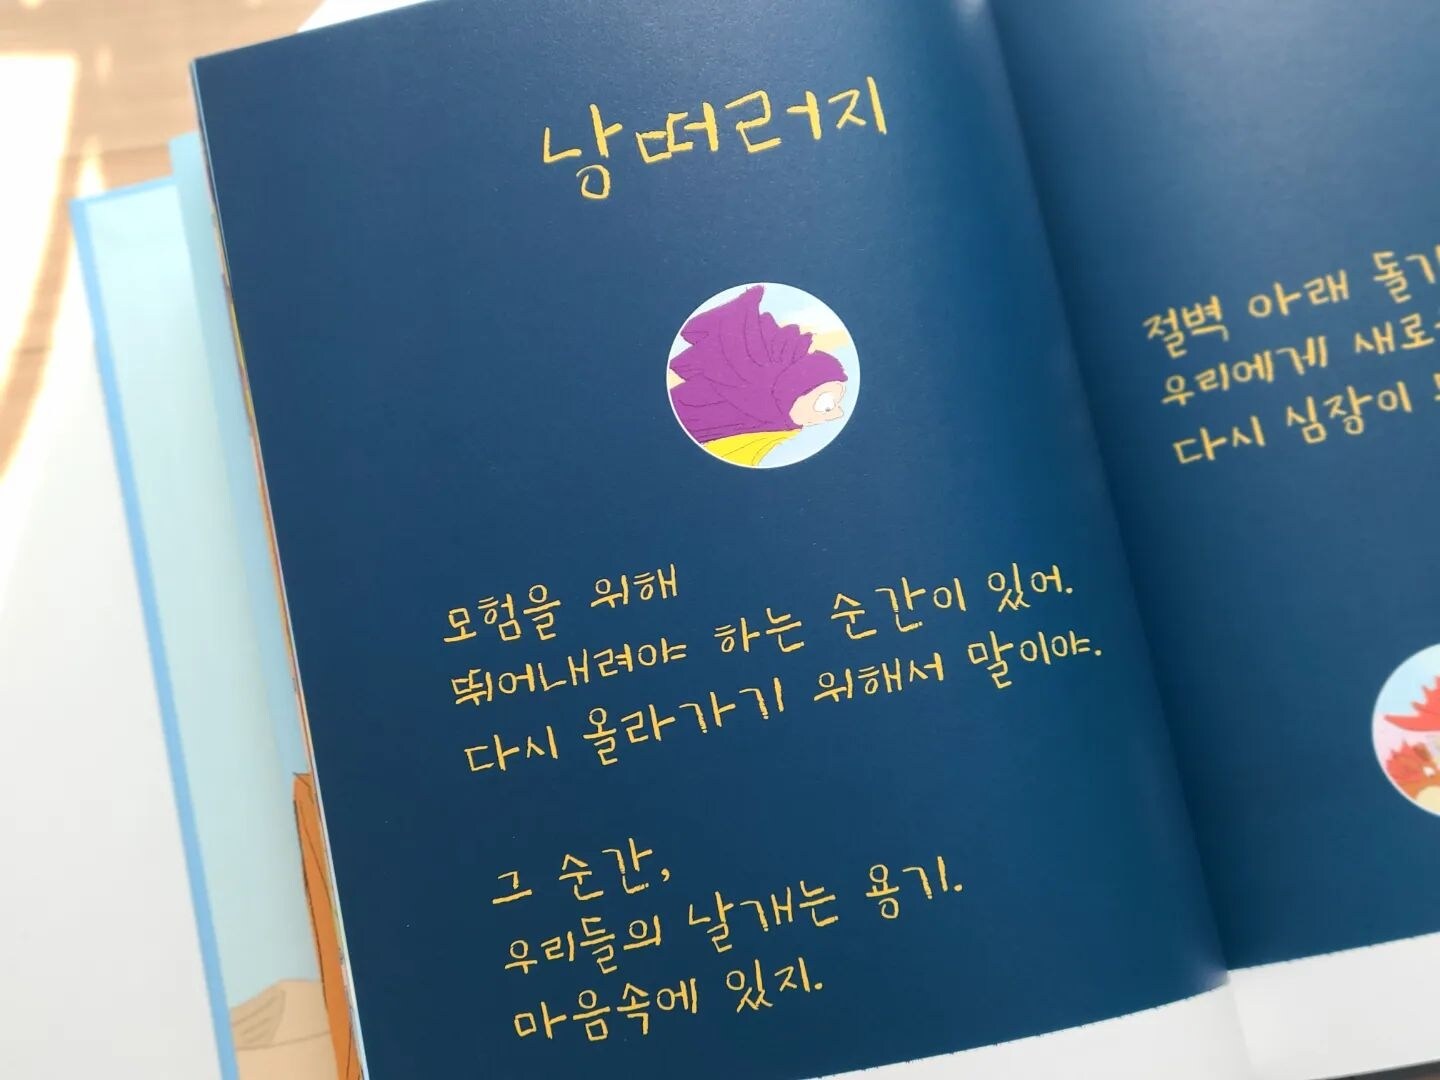 낭떠러지
모험을 위해
뛰어내려야 하는 순간이 있어.
다시 올라가기 위해서 말이야.
그 순간,
우리들의 날개는 용기.
마음속에 있지.
절벽 아래
우리에게
다시 심장이